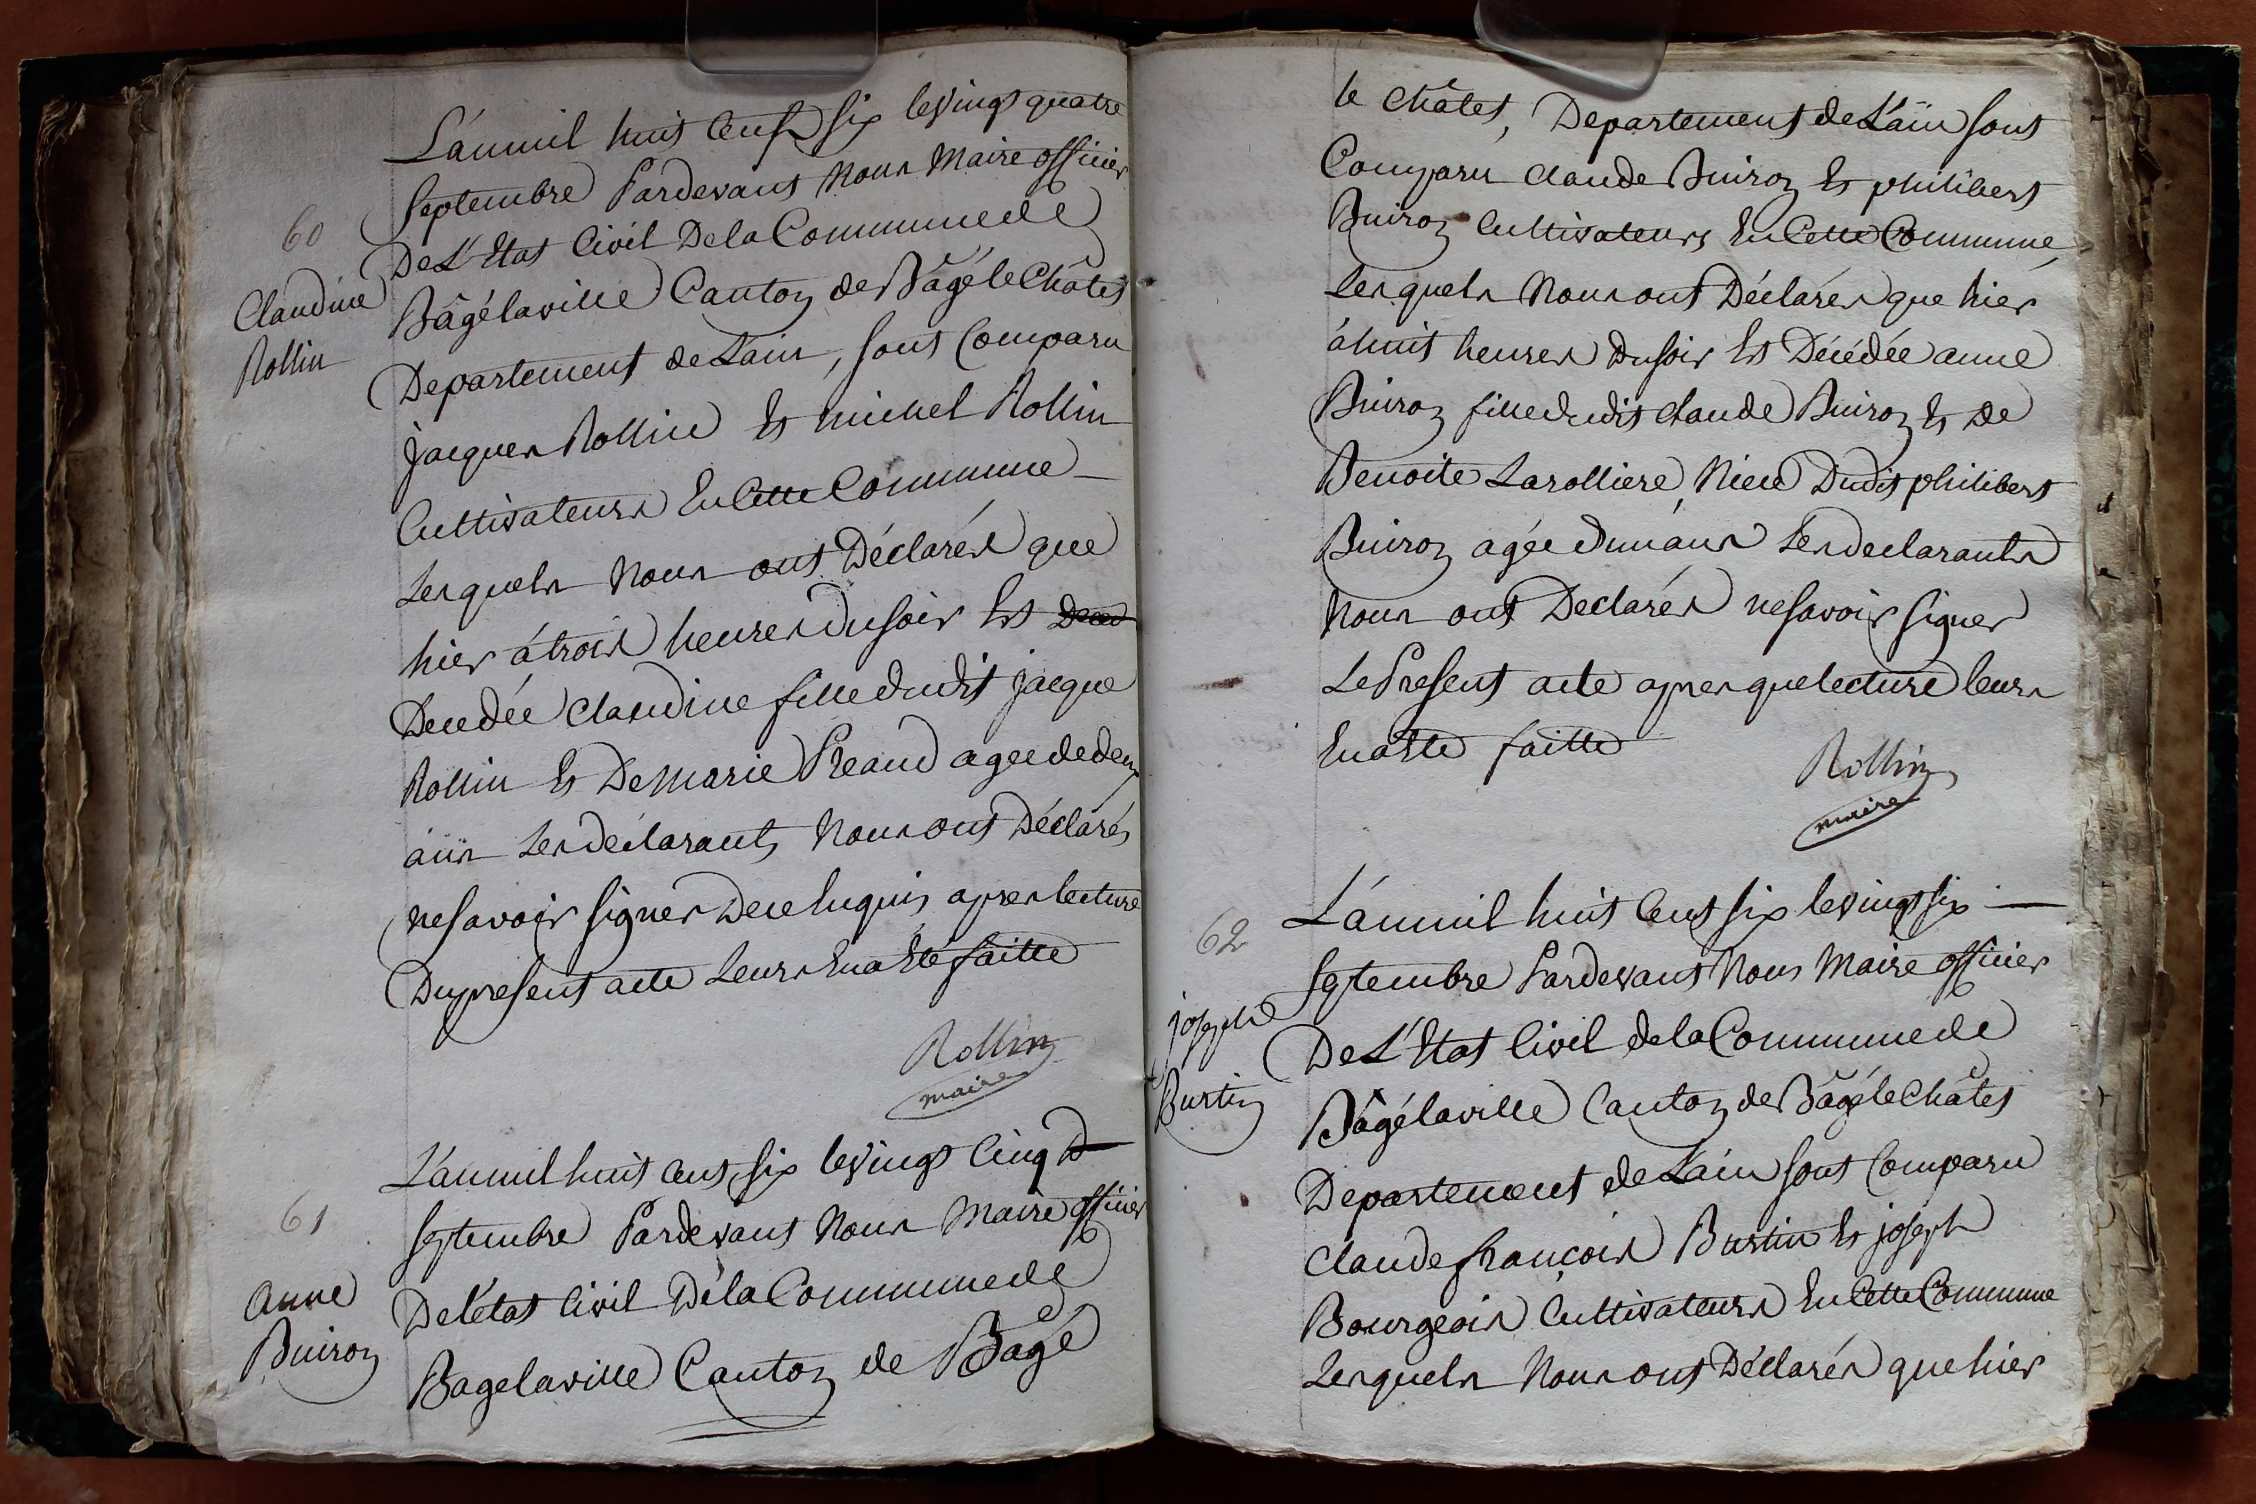 L'anmil huit Cent six le vingt quatre
Septembre Pardevant Nous Maire officier
60
De L'Etat Civil De la Commune de
Claudine
Bâgé la ville Canton de Bâgé le Châtel
Rollin
Departement de L'ain, sont Comparu
jacques Rollin Et michel Rollin
Cultivateurs En Cette Commune
Lesquels Nous ont Déclarés que
hier à trois heures du soir Est Deced
Decedée Claudine fille dudit jacque
Rollin Et De Marie Preaud agée de deux
ans Les déclarants Nous ont Déclarés
ne savoir signer De ce Enquis apres lecture
Du present acte Leurs En a Eté faitte
Rollin
maire
L'an mil huit cent six le vingt Cinq
61
septembre Pardevant Nous Maire officier
Anne
De l'état Civil De la Commune de
Buiron
Bagé la ville Canton de Bâgé
le Châtel, Departement de L'ain sont
Comparu Claude Buiron Et philibert
Buiron Cultivateurs En Cette Commune,
Lesquels Nous ont Déclarés que hier
à huit heures du soir Est Décédée anne
Buiron fille dudit Claude Buiron Et De
Benoite Larolliere, Niece Dudit philibert
Buiron agée d'un ans Les declarants
Nous ont Declarés ne savoir signer
Le Present acte apres que lecture leurs
En a Eté faitte
Rollin
maire
62
L'an mil huit Cent six le vingt six
septembre Pardevant Nous Maire officier
josephe
De L'Etat Civil de la Commune de
Burtin
Bâgé la ville Canton de Bâgé le Châtel
Departement de L'ain sont Comparu
Claude françois Burtin Et joseph
Bourgeois Cultivateurs En Cette Commune
Lesquels Nous ont Déclarés que hier